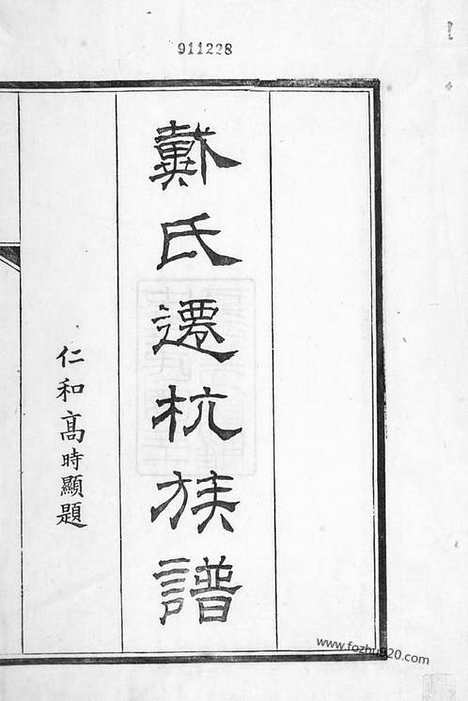 911228
戴氏遷杭族譜
仁和高時顯題
www.fozhu920.com